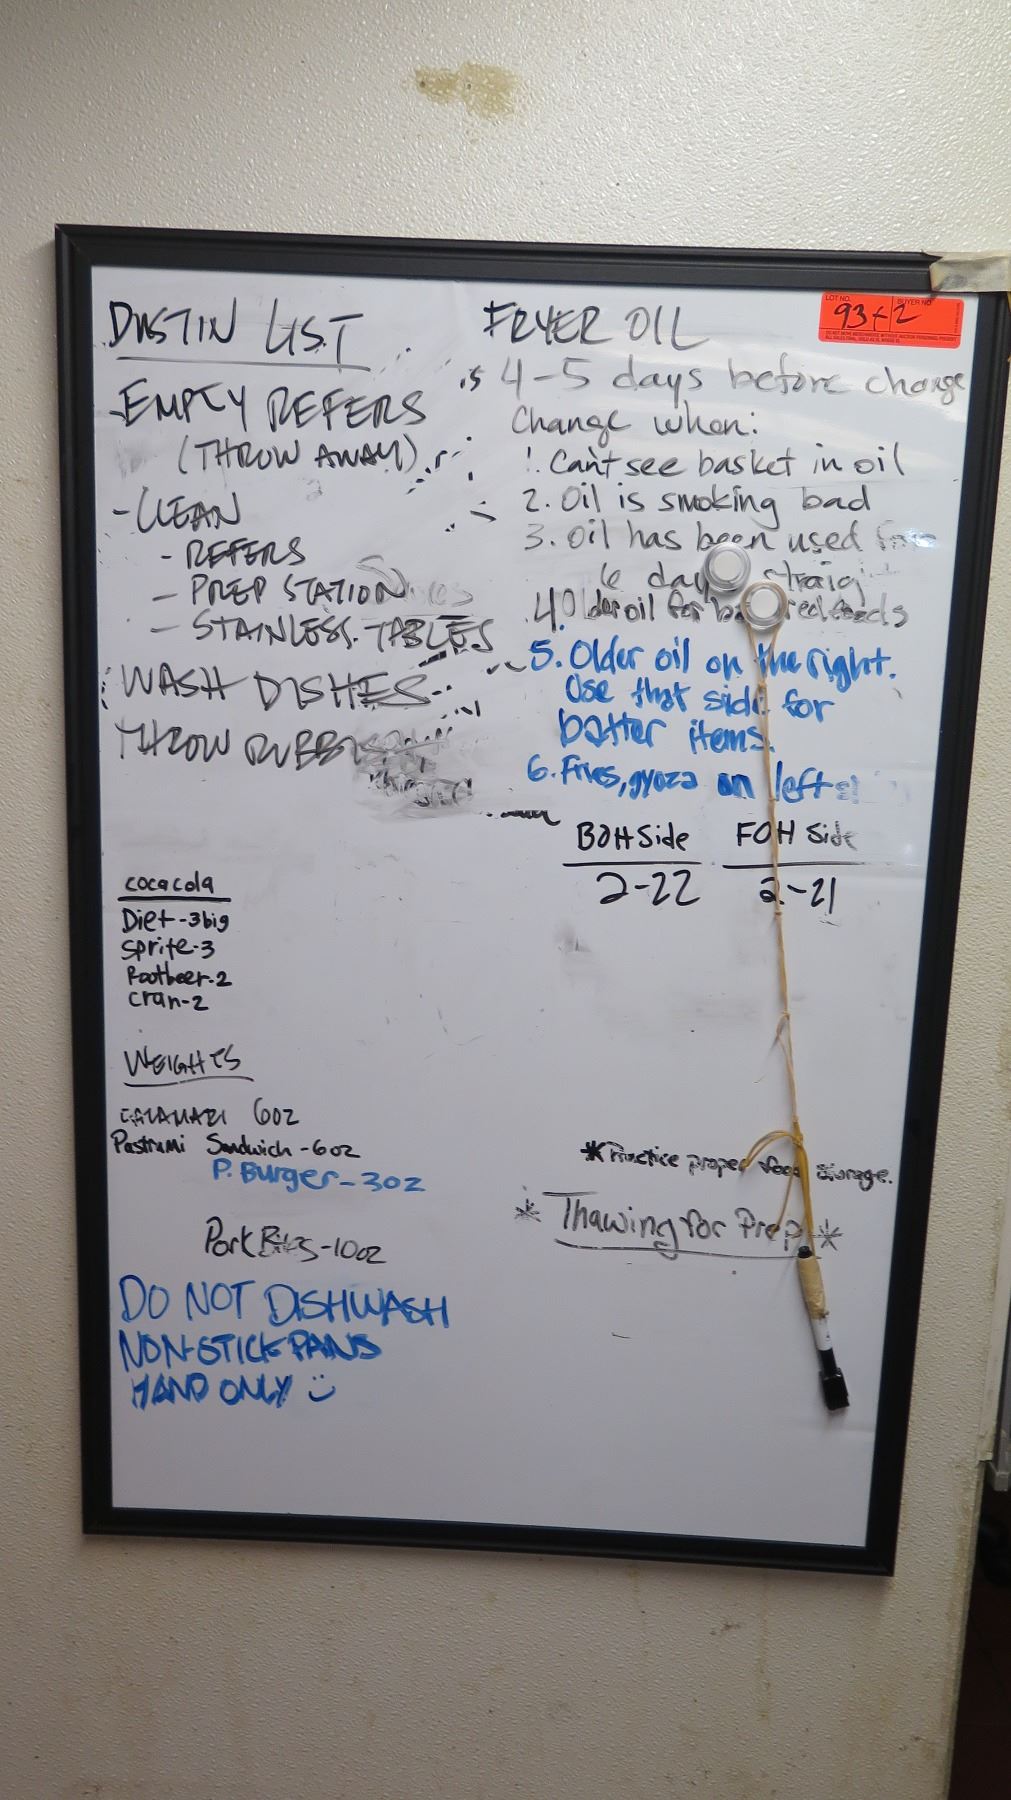 DUSTIN LIST
EMPTY REFERS
(THROW AWAY)
-CLEAN
- REFERS
- PREP STATION
- STAINLESS. TABLES
WASH DISHES
THROW
cocacola
Diet-3big
Sprite-3
Rootbeer-2
Cran-2
WEIGHTS
CALAMARI 6oz
Pastrami Sandwich-6oz
P. Burger-3oz
Pork Bites-10oz
DO NOT DISHWASH
NON-STICK PANS
HAND ONLY
LOT NO. BUYER NO.
93+2
FRYER OIL
4-5 days before change
Change when:
1. Cant see basket in oil
2. Oil is smoking bad
3. Oil has been used for
6 days
4. Older oil for foods
5. Older oil on the right.
Use that side for
batter items.
6. Fries, gyoza on left
BOH Side FOH Side
2-22 2-21
*Practice proper food storage.
* Thawing for Prep *